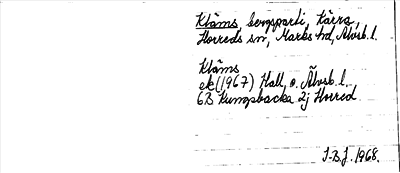 Klåms, bergsparti, Kärra,
Horreds sn, Marks hd, Älvsb. l.
Klåms
ek (1967) Hall. o. Älvsb. l.
6B Kungsbacka 2j Horred
J-B.J. 1968.